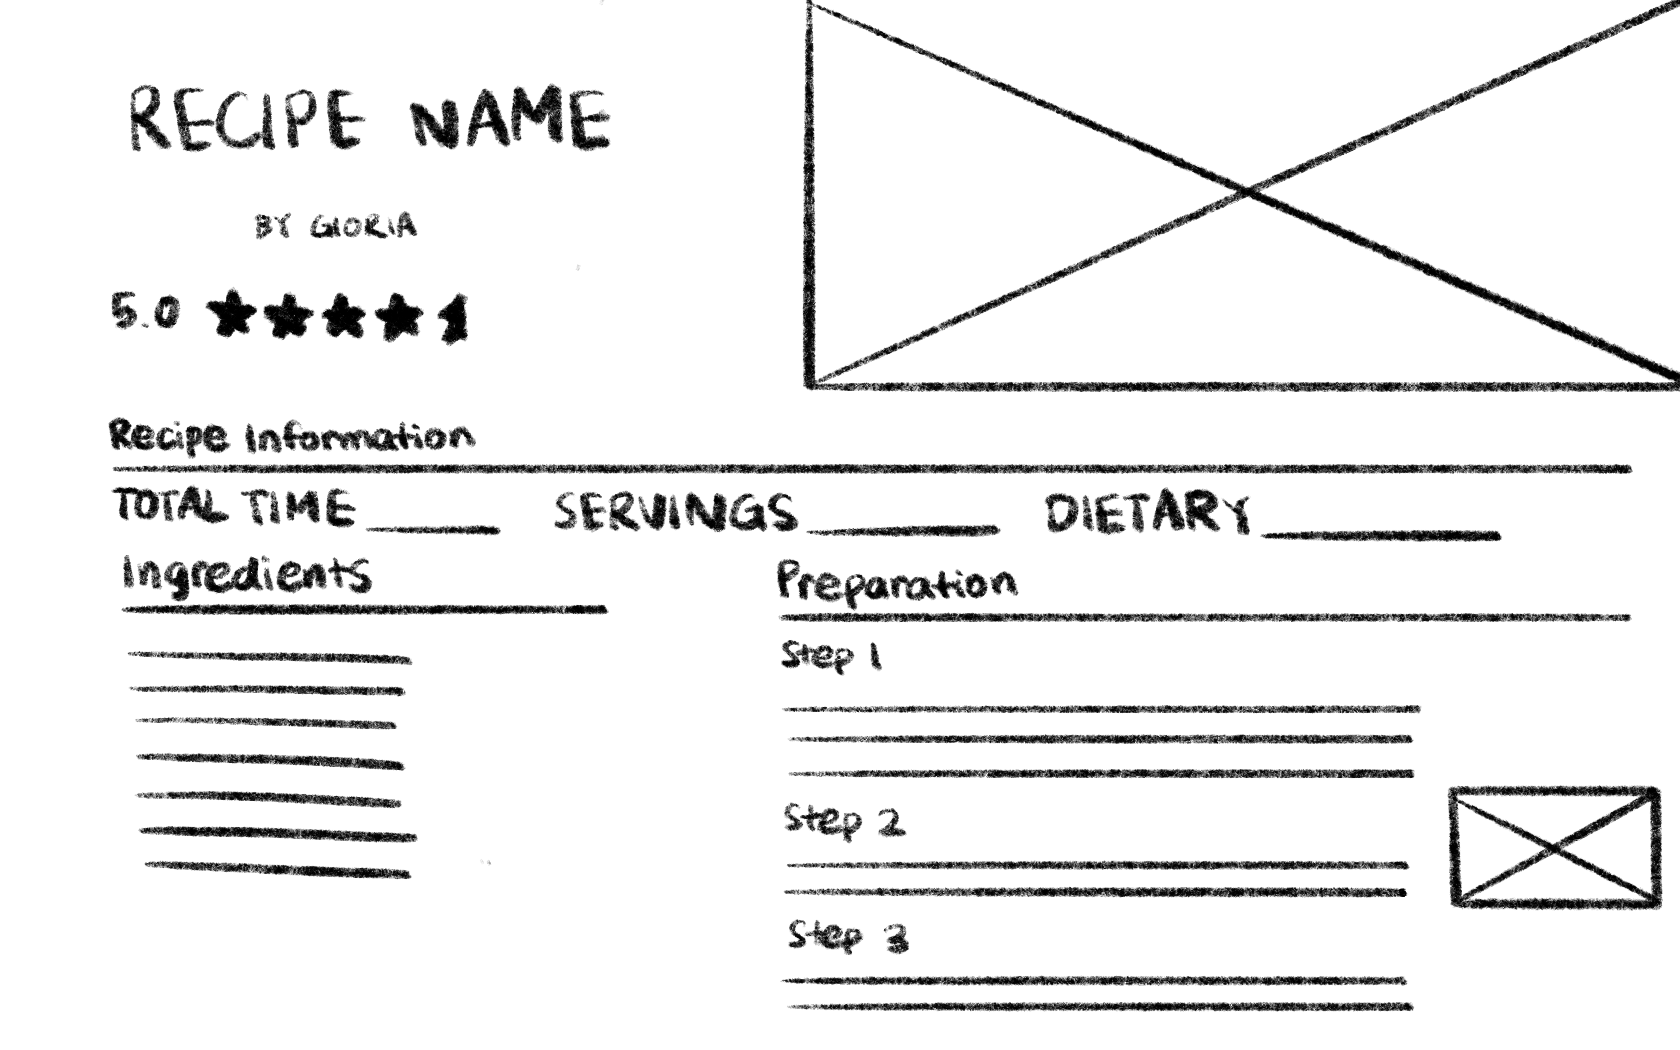 RECIPE NAME
BY GLORIA
5.0
Recipe Information
TOTAL TIME SERVINGS DIETARY
Ingredients
Preparation
Step 1
Step 2
Step 3